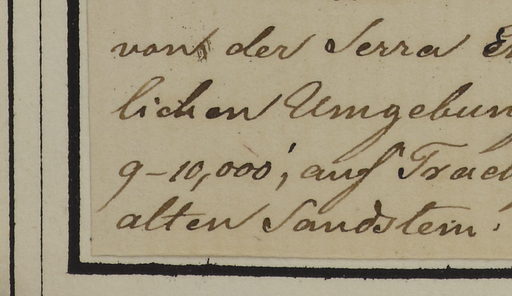 von der Serra
lichen Umgebun
9-10,000', auf Trach
alten Sandstein.